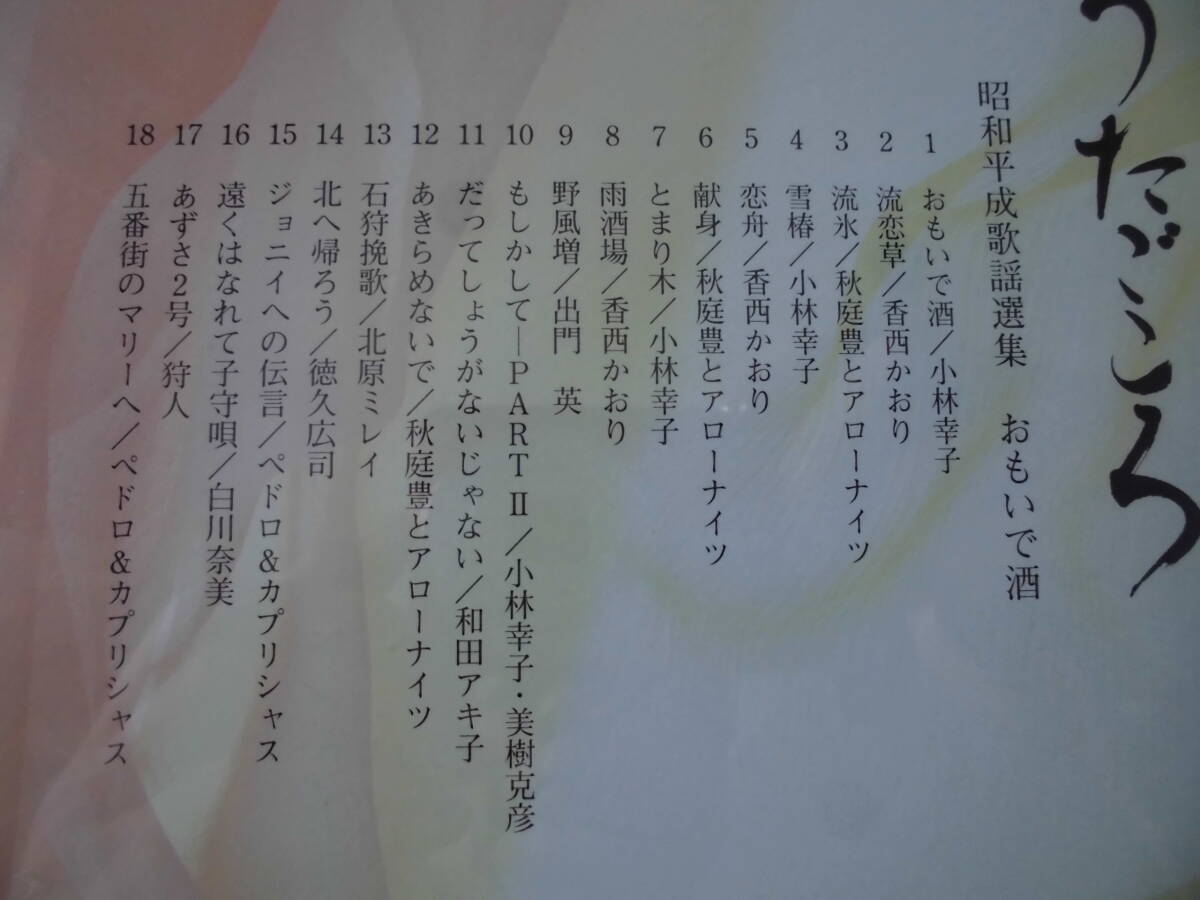 うたごころ
昭和平成歌謡選集　おもいで酒
1　おもいで酒／小林幸子
2　流恋草／香西かおり
3　流氷／秋庭豊とアローナイツ
4　雪椿／小林幸子
5　恋舟／香西かおり
6　献身／秋庭豊とアローナイツ
7　とまり木／小林幸子
8　雨酒場／香西かおり
9　野風増／出門　英
10　もしかして―PART II／小林幸子・美樹克彦
11　だってしょうがないじゃない／和田アキ子
12　あきらめないで／秋庭豊とアローナイツ
13　石狩挽歌／北原ミレイ
14　北へ帰ろう／徳久広司
15　ジョニイへの伝言／ペドロ&カプリシャス
16　遠くはなれて子守唄／白川奈美
17　あずさ2号／狩人
18　五番街のマリーへ／ペドロ&カプリシャス